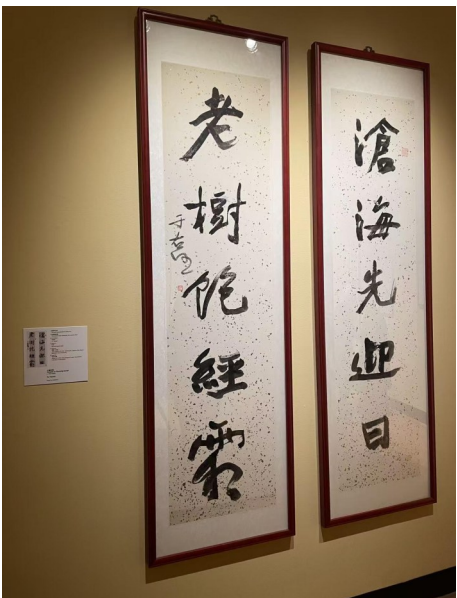 滄海先迎日
老樹飽經霜
于右任